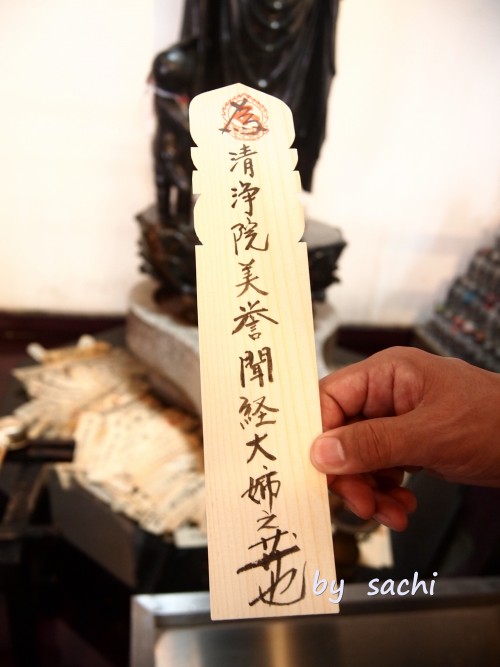 為清浄院美誉聞経大姉之𦬇也
by sachi